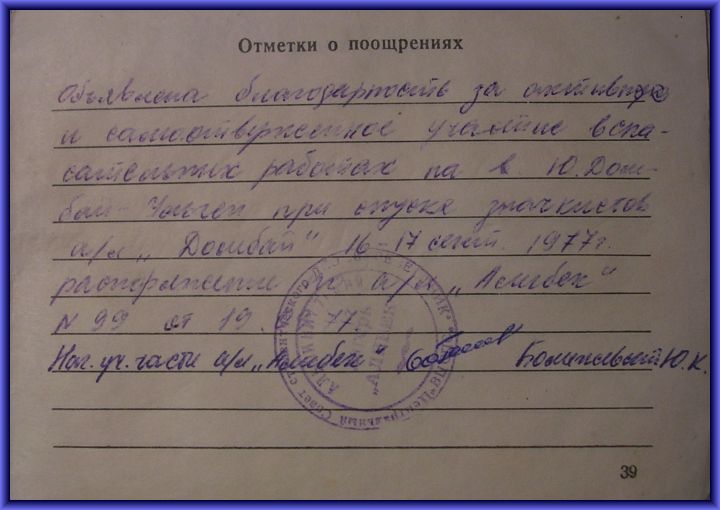 Отметки о поощрениях
Объявлена благодарность за активную
и самоотверженное участие в спа-
сательных работах на в. Ю. Дом-
бай-Ульген при спуске значкистов
а/л „Домбай" 16-17 сент 1977г.
распоряжение п а/л „Алибек"
N 99 от 19. 77
Нач. уч. части а/л „Алибек" Ю.К.
Центральный Совет
39